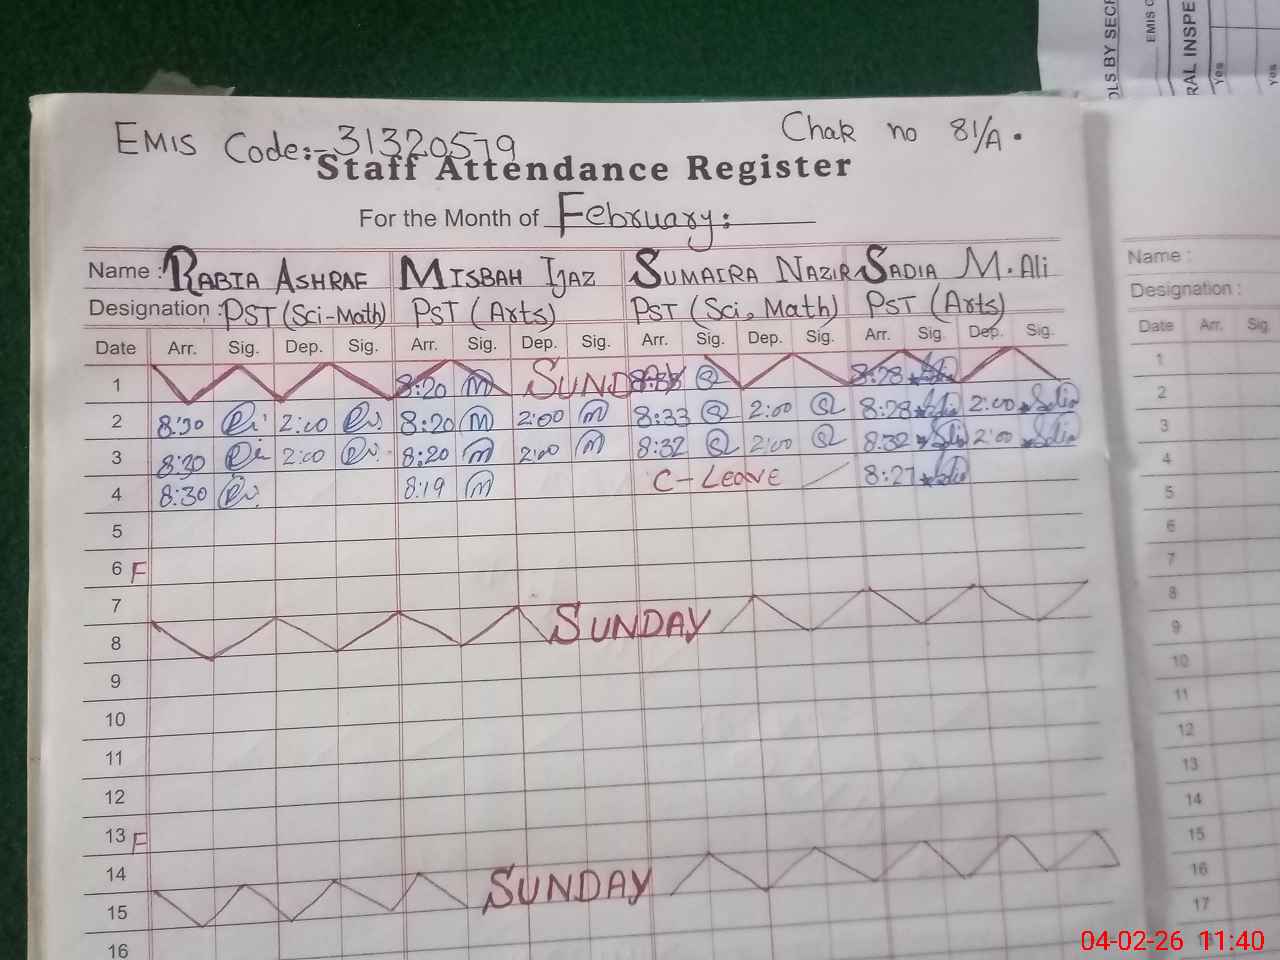 OLS BY SECR
EMIS C
RAL INSPE
Yes
Yes
EMIS Code:- 31320579
Chak no 81/A.
Staff Attendance Register
For the Month of February:
Name : RABIA ASHRAF MISBAH IJAZ SUMAIRA NAZIR SADIA M. Ali
Designation : PST (Sci-Math) PST (Arts) PST (Sci, Math) PST (Arts)
Date Arr. Sig. Dep. Sig. Arr. Sig. Dep. Sig. Arr. Sig. Dep. Sig. Arr. Sig. Dep. Sig.
1 8:20 m SUND 8:28
2 8:30 2:00 8:20 m 2:00 m 8:33 2:00 8:28 2:00
3 8:30 2:00 8:20 m 2:00 m 8:32 2:00 8:32 2:00
4 8:30 8:19 m C-Leave 8:27
5
6 F
7
8 SUNDAY
9
10
11
12
13 F
14
15 SUNDAY
16
Name :
Designation :
Date Arr. Sig.
1
2
3
4
5
6
7
8
9
10
11
12
13
14
15
16
17
04-02-26 11:40